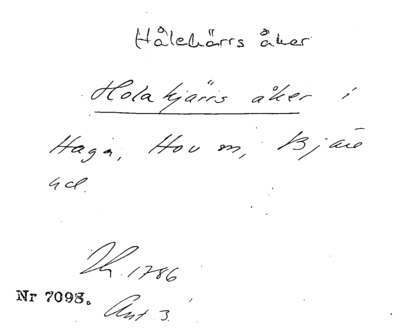 Hålekärrs åker
Holakjärrs åker i
Haga, Hov sn, Bjäre
hd.
Lh. 1786
Nr 7098.
Ant 3.